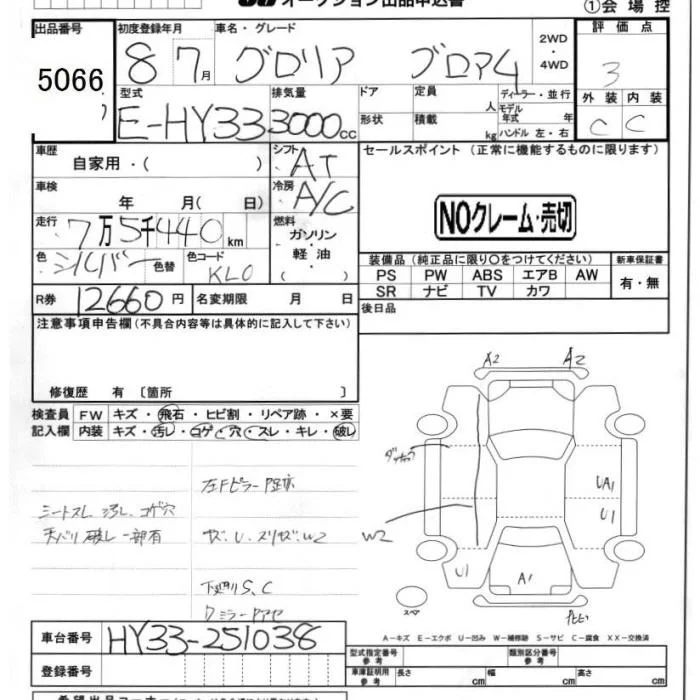 オークション出品申込書
①会場控
出品番号 初度登録年月 車名・グレード 2WD 評価点
5066 8 7月 グロリア グロアム ・4WD 3
型式 排気量 ドア 定員 人 ディーラー・並行 外装 内装
E-HY33 3000cc 形状 積載 kg モデル年式 年 ハンドル 左・右 C C
車歴 シフト セールスポイント (正常に機能するものに限ります)
自家用・( ) AT
車検 冷房
年 月( 日) A/C NOクレーム・売切
走行 燃料
7万5千440km ガソリン
色 シルバー 色替 色コード KL0 ・軽油 ( )
装備品 (純正品に限り○をつけてください) 新車保証書
PS PW ABS エアB AW 有・無
SR ナビ TV カワ
R券 12660円 名変期限 月 日 後日品
注意事項申告欄 (不具合内容等は具体的に記入して下さい)
修復歴 有 〔箇所 〕
検査員 FW キズ・飛石・ヒビ割・リペア跡・×要
記入欄 内装 キズ・汚レ・コゲ・穴・スレ・キレ・破レ
A2 A2
左Fピラー P跡
シートスレ 汚レ コゲ穴
天バリ 破レ 一部有
キズ、U、スリキズ、W2
下廻りS、C
W2
UA1
U1
U1
A1
スペア
A-キズ E-エクボ U-凹み W-補修跡 S-サビ C-腐食 XX-交換済
車台番号 HY33-251038 型式指定番号 参考 類別区分番号 参考
登録番号 車庫証明用 参考 長さ cm 幅 cm 高さ cm